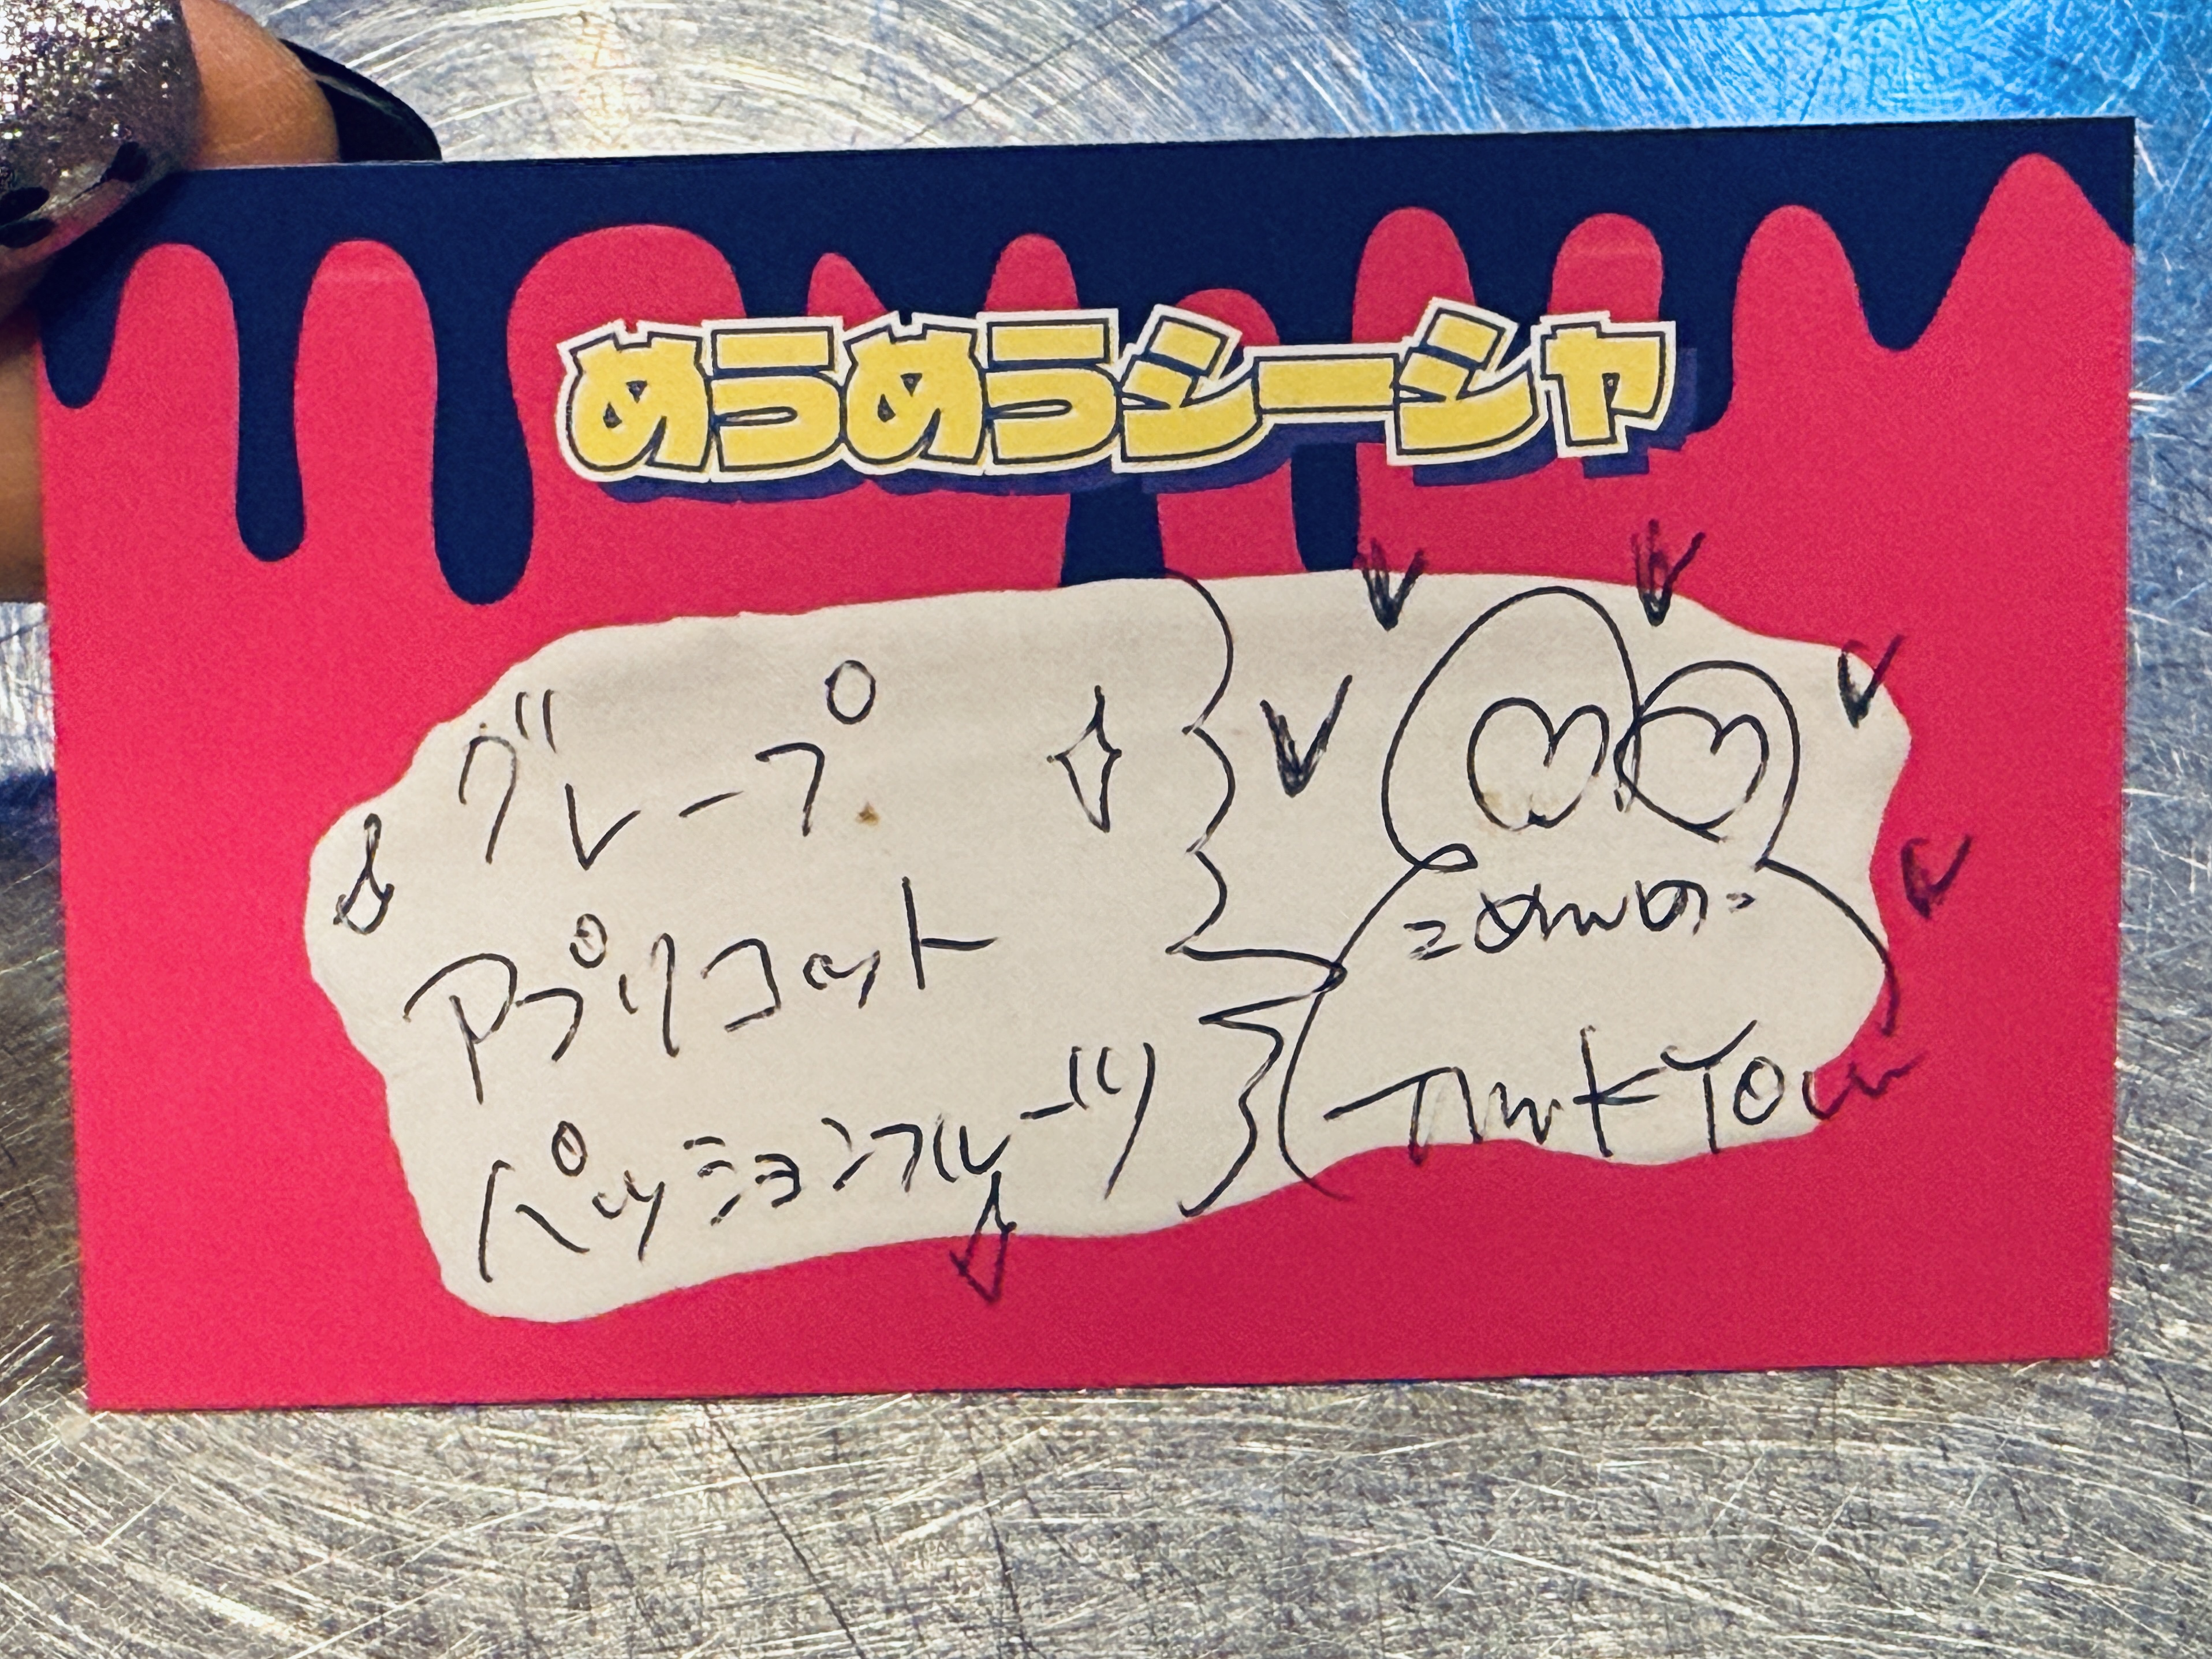 めらめらシーシャ
グレープ
アプリコット
パッションフルーツ
Thank You